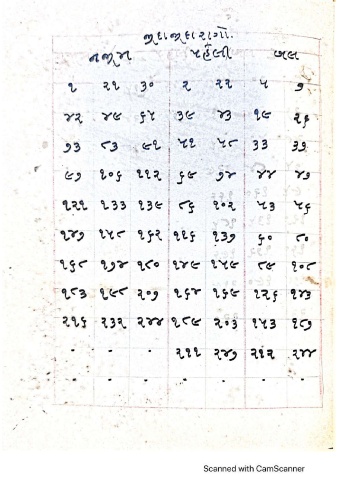 જુદાજુદારાગો.
પહેલી
૧ ૨૧ ૩૦ ૨ ૨૨ ૫ ૭
૪૨ ૪૯ ૬૫ ૩૯ ૪૩ ૧૯ ૨૬
૭૩ ૮૩ ૯૧ ૫૧ ૫૮ ૩૩ ૩૭
૯૭ ૧૦૬ ૧૧૨ ૬૯ ૭૪ ૪૪ ૪૭
૧૨૧ ૧૩૩ ૧૩૯ ૮૬ ૧૦૨ ૫૩ ૫૬
૧૪૭ ૧૫૮ ૧૬૨ ૧૧૬ ૧૩૭ ૬૦ ૮૦
૧૬૮ ૧૭૪ ૧૮૦ ૧૪૯ ૧૫૯ ૮૯ ૧૦૮
૧૮૩ ૧૯૮ ૨૦૭ ૧૬૪ ૧૬૯ ૧૨૬ ૧૪૩
૨૧૬ ૨૩૨ ૨૪૪ ૧૮૯ ૨૦૩ ૧૫૩ ૧૮૭
- - - ૨૧૧ ૨૪૭ ૨૧૨ ૨૪૪
Scanned with CamScanner